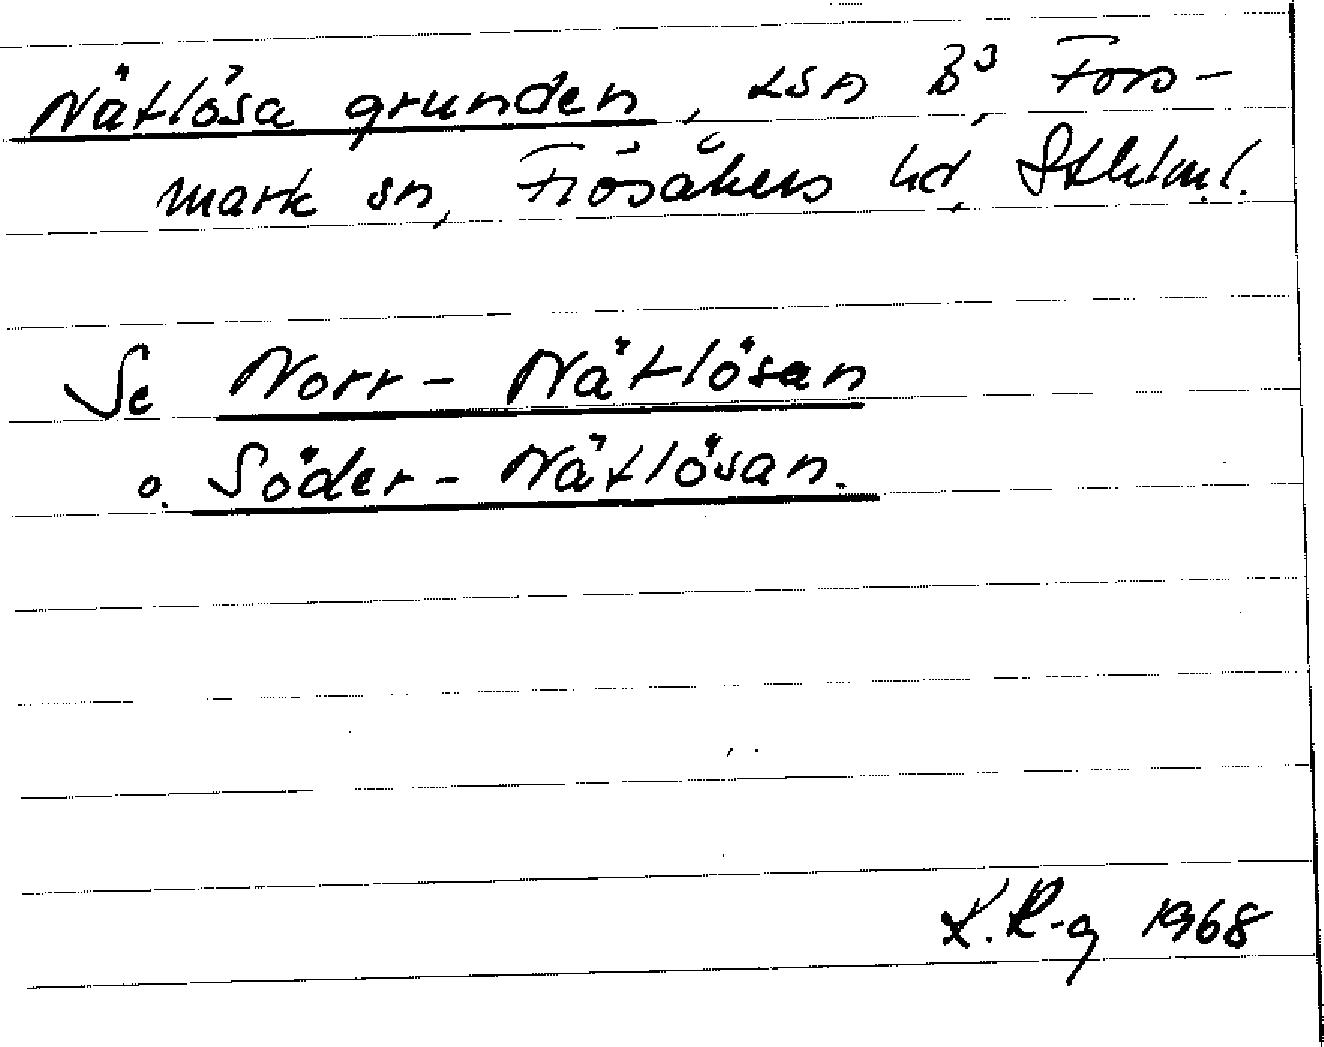 Nätlösa grunden, LSn B³, Fors-
mark sn, Frösåkers hd, Sthlm l.
Se Norr-Nätlösan
o. Söder-Nätlösan.
K.R-g 1968